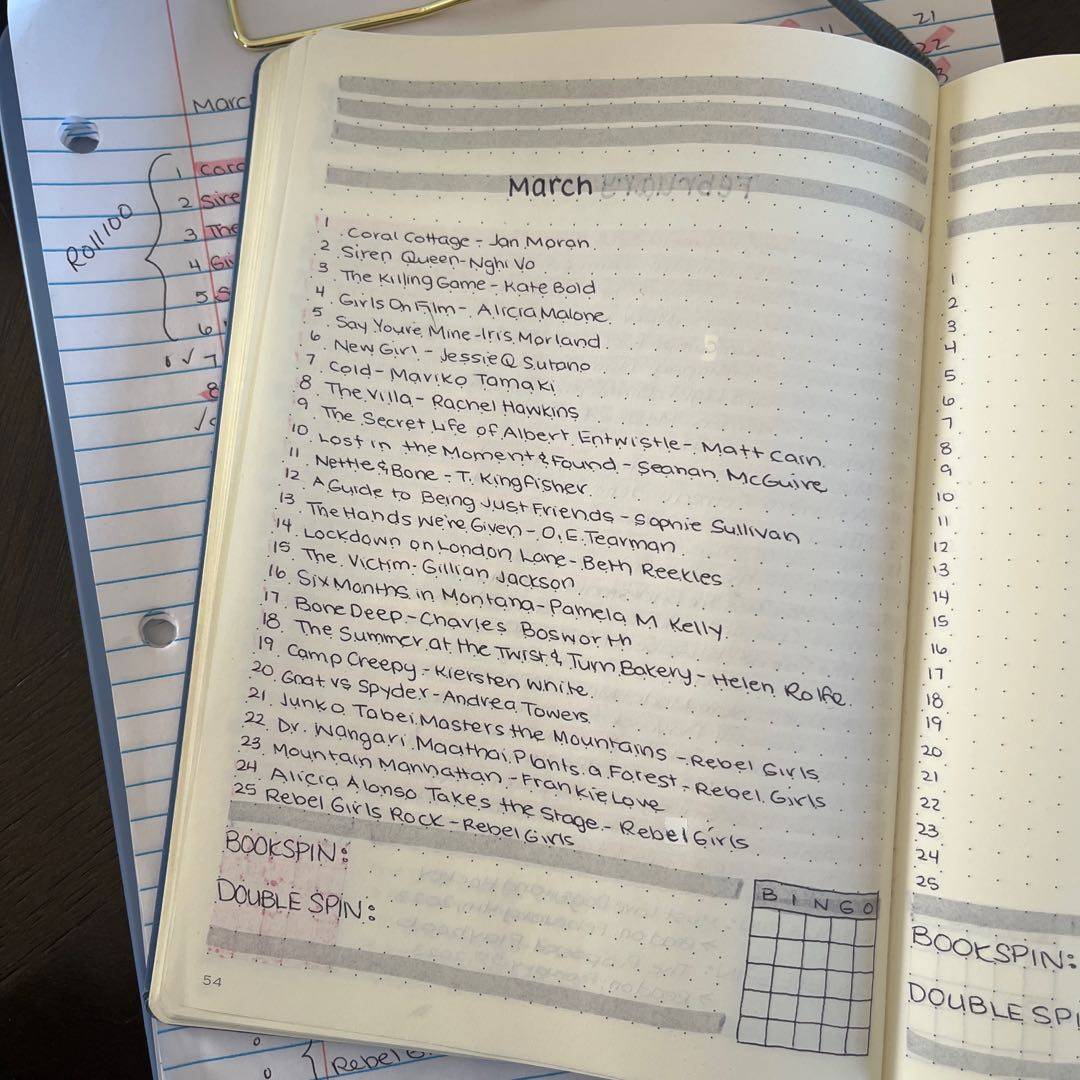 March
1. Coral Cottage - Jan Moran
2. Siren Queen - Nghi Vo
3. The Killing Game - Kate Bold
4. Girls On Film - Alicia Malone
5. Say Youre Mine - Iris Morland
6. New Girl - Jessie Q Sutano
7. Cold - Mariko Tamaki
8. The Villa - Rachel Hawkins
9. The Secret Life of Albert Entwistle - Matt Cain
10. Lost in the Moment & Found - Seanan McGuire
11. Nettle & Bone - T. Kingfisher
12. A Guide to Being Just Friends - Sophie Sullivan
13. The Hands We're Given - O.E. Tearman
14. Lockdown on London Lane - Beth Reekles
15. The Victim - Gillian Jackson
16. Six Months in Montana - Pamela M Kelly
17. Bone Deep - Charles Bosworth
18. The Summer at the Twist & Turn Bakery - Helen Rolfe
19. Camp Creepy - Kiersten White
20. Gnat vs Spyder - Andrea Towers
21. Junko Tabei Masters the Mountains - Rebel Girls
22. Dr. Wangari Maathai Plants a Forest - Rebel Girls
23. Mountain Manhattan - Frankie Love
24. Alicia Alonso Takes the Stage - Rebel Girls
25 Rebel Girls Rock - Rebel Girls
BOOKSPIN:
DOUBLE SPIN:
B I N G O
54
Roll 100
1
2
3 The
4
5
6
7
8
21
22
1
2
3
4
5
6
7
8
9
10
11
12
13
14
15
16
17
18
19
20
21
22
23
24
25
BOOKSPIN:
DOUBLE